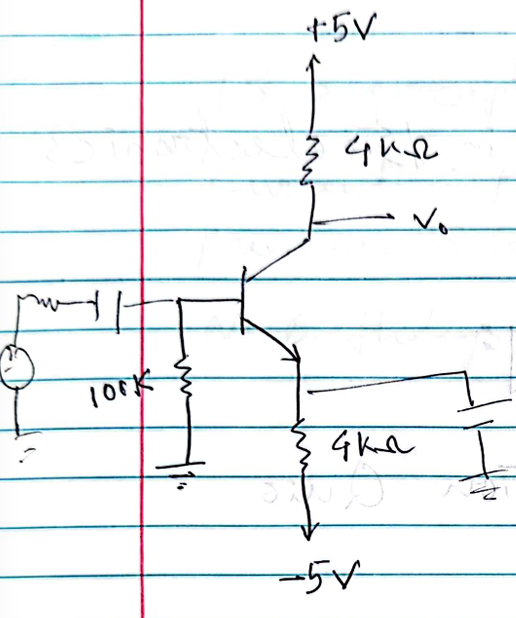 +5V
4KΩ
V₀
100K
4KΩ
-5V